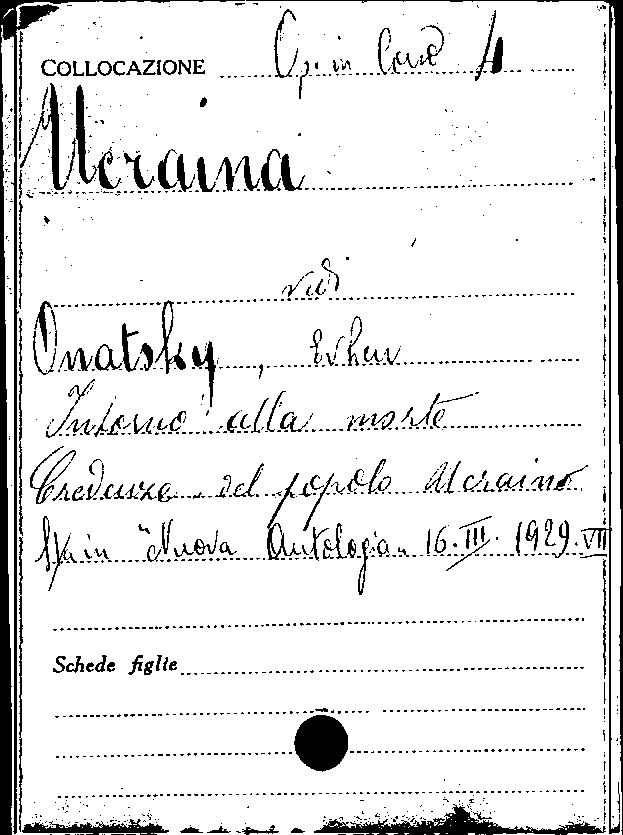 COLLOCAZIONE Op. in 4
Ucraina
vedi
Onatsky, Evhen
Intorno alla morte
Credenze del popolo Ucraino
in "Nuova Antologia" 16.III.1929.VII
Schede figlie